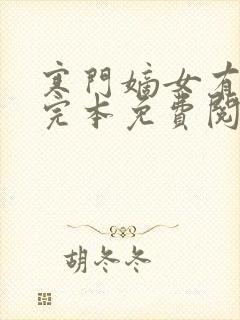 寒門嫡女有
完本免費閱
胡冬冬